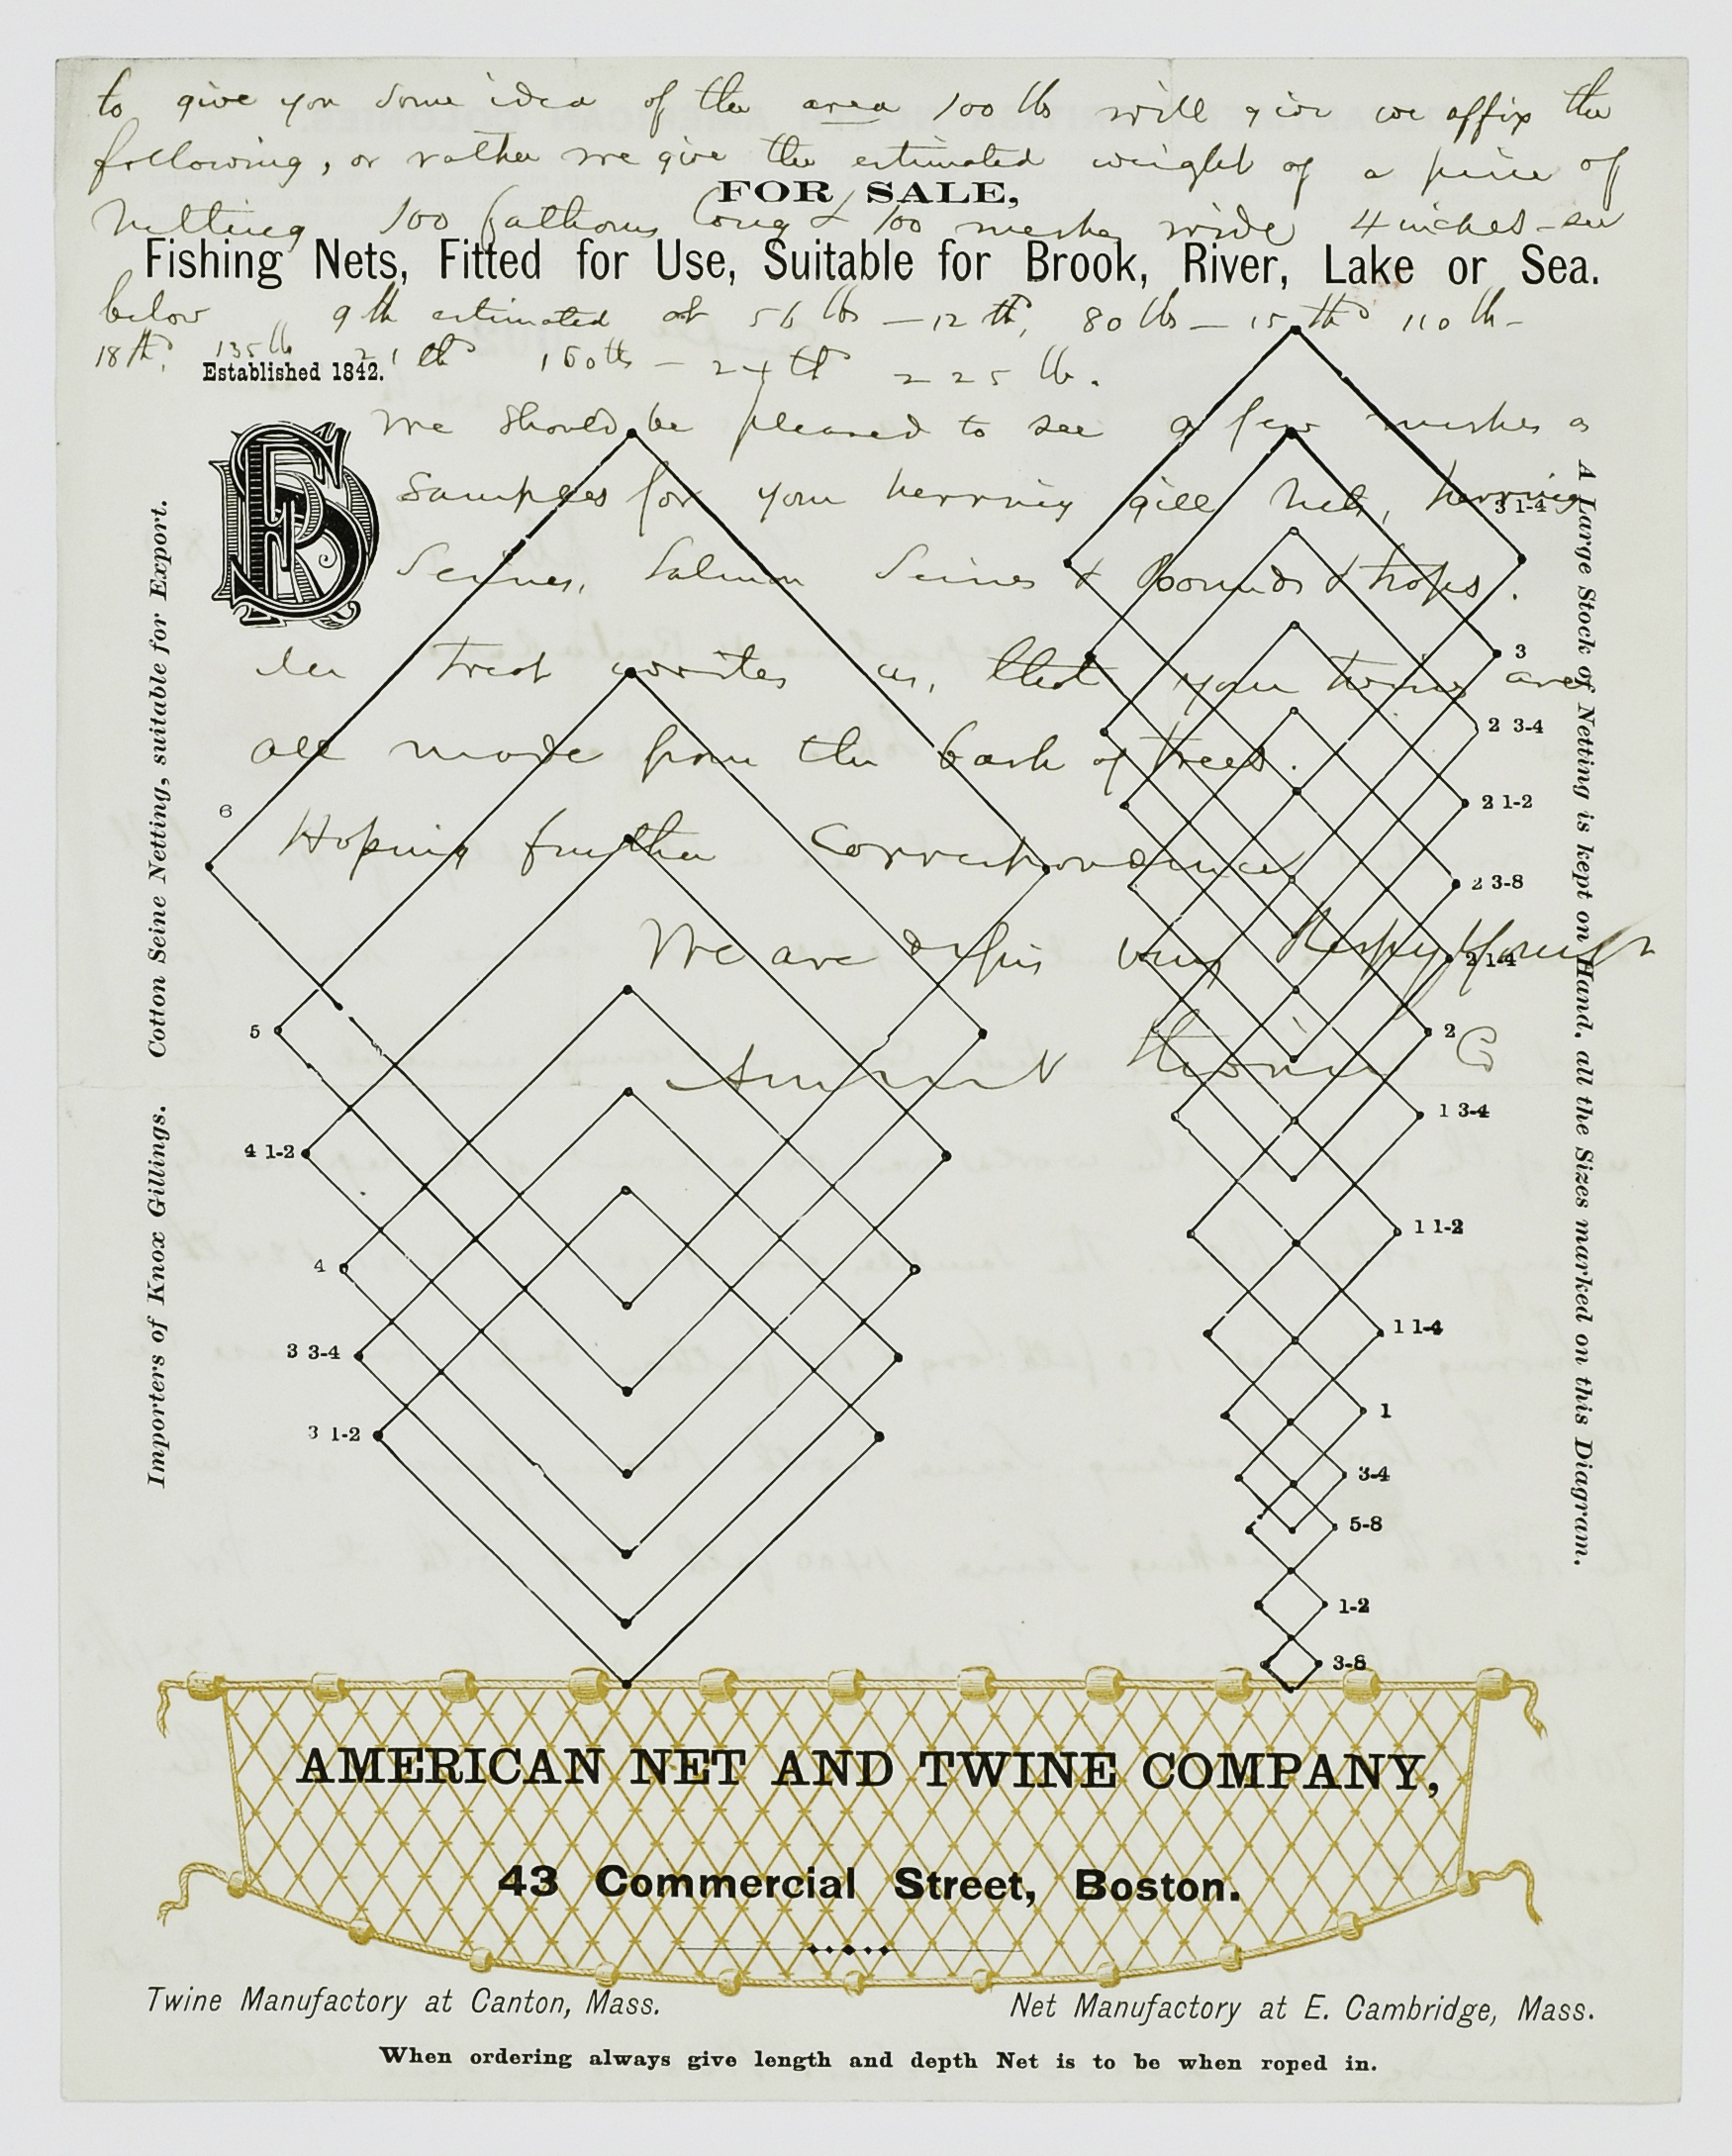 to give you some idea of the area 100 lbs will give we affix the
following, or rather we give the estimated weight of a piece of
FOR SALE,
netting 100 fathoms long & 100 meshes wide 4 inches - see
Fishing Nets, Fitted for Use, Suitable for Brook, River, Lake or Sea.
below 9 th estimated at 56 lbs — 12 th, 80 lbs — 15 th 110 lb -
18 th. 135 lb 21 th 160 lbs — 24 th 225 lb.
Established 1842.
We should be pleased to see a few meshes as
samples for your herring gill nets, herring
3 1-4
Seines, Salmon Seines & Pounds & traps.
treat writes us, that your twines are
3
2 3-4
all made from the bark of trees.
2 1-2
6
Hoping further Correspondence
2 3-8
We are very Respy Yours
2 1-4
5
2
Am Net & Twine Co
4 1-2
1 3-4
4
1 1-2
3 3-4
1 1-4
3 1-2
1
3-4
5-8
1-2
3-8
Cotton Seine Netting, suitable for Export.
Importers of Knox Gillings.
A Large Stock of Netting is kept on Hand, all the Sizes marked on this Diagram.
AMERICAN NET AND TWINE COMPANY,
43 Commercial Street, Boston.
Twine Manufactory at Canton, Mass.
Net Manufactory at E. Cambridge, Mass.
When ordering always give length and depth Net is to be when roped in.